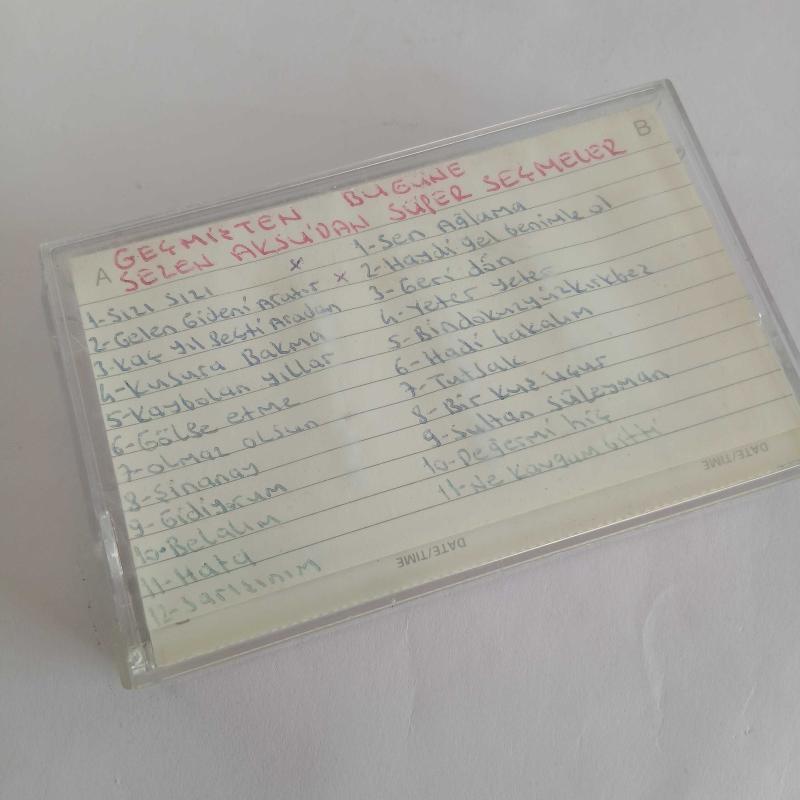 A
B
GEÇMİŞTEN BUGÜNE
SEZEN AKSU'DAN SÜPER SEÇMELER
1-SIZI SIZI
2-Gelen Gideni Aratır x
3-Kaç yıl geçti Aradan
4-Kusura Bakma
5-Kaybolan yıllar
6-Gölge etme
7-Olmaz olsun
8-Sinanay
9-Gidiyorum
10-Belalım
11-Hata
12-Sarışınım
x 1-Sen Ağlama
2-Haydi gel benimle ol
3-Geri dön
4-Yeter yeter
5-Bindokuzyüzkırkbeş
6-Hadi bakalım
7-Tutsak
8-Bir kuş uçur
9-Sultan Süleyman
10-Değermi hiç
11-Ne Kavgam bitti
DATE/TIME
DATE/TIME